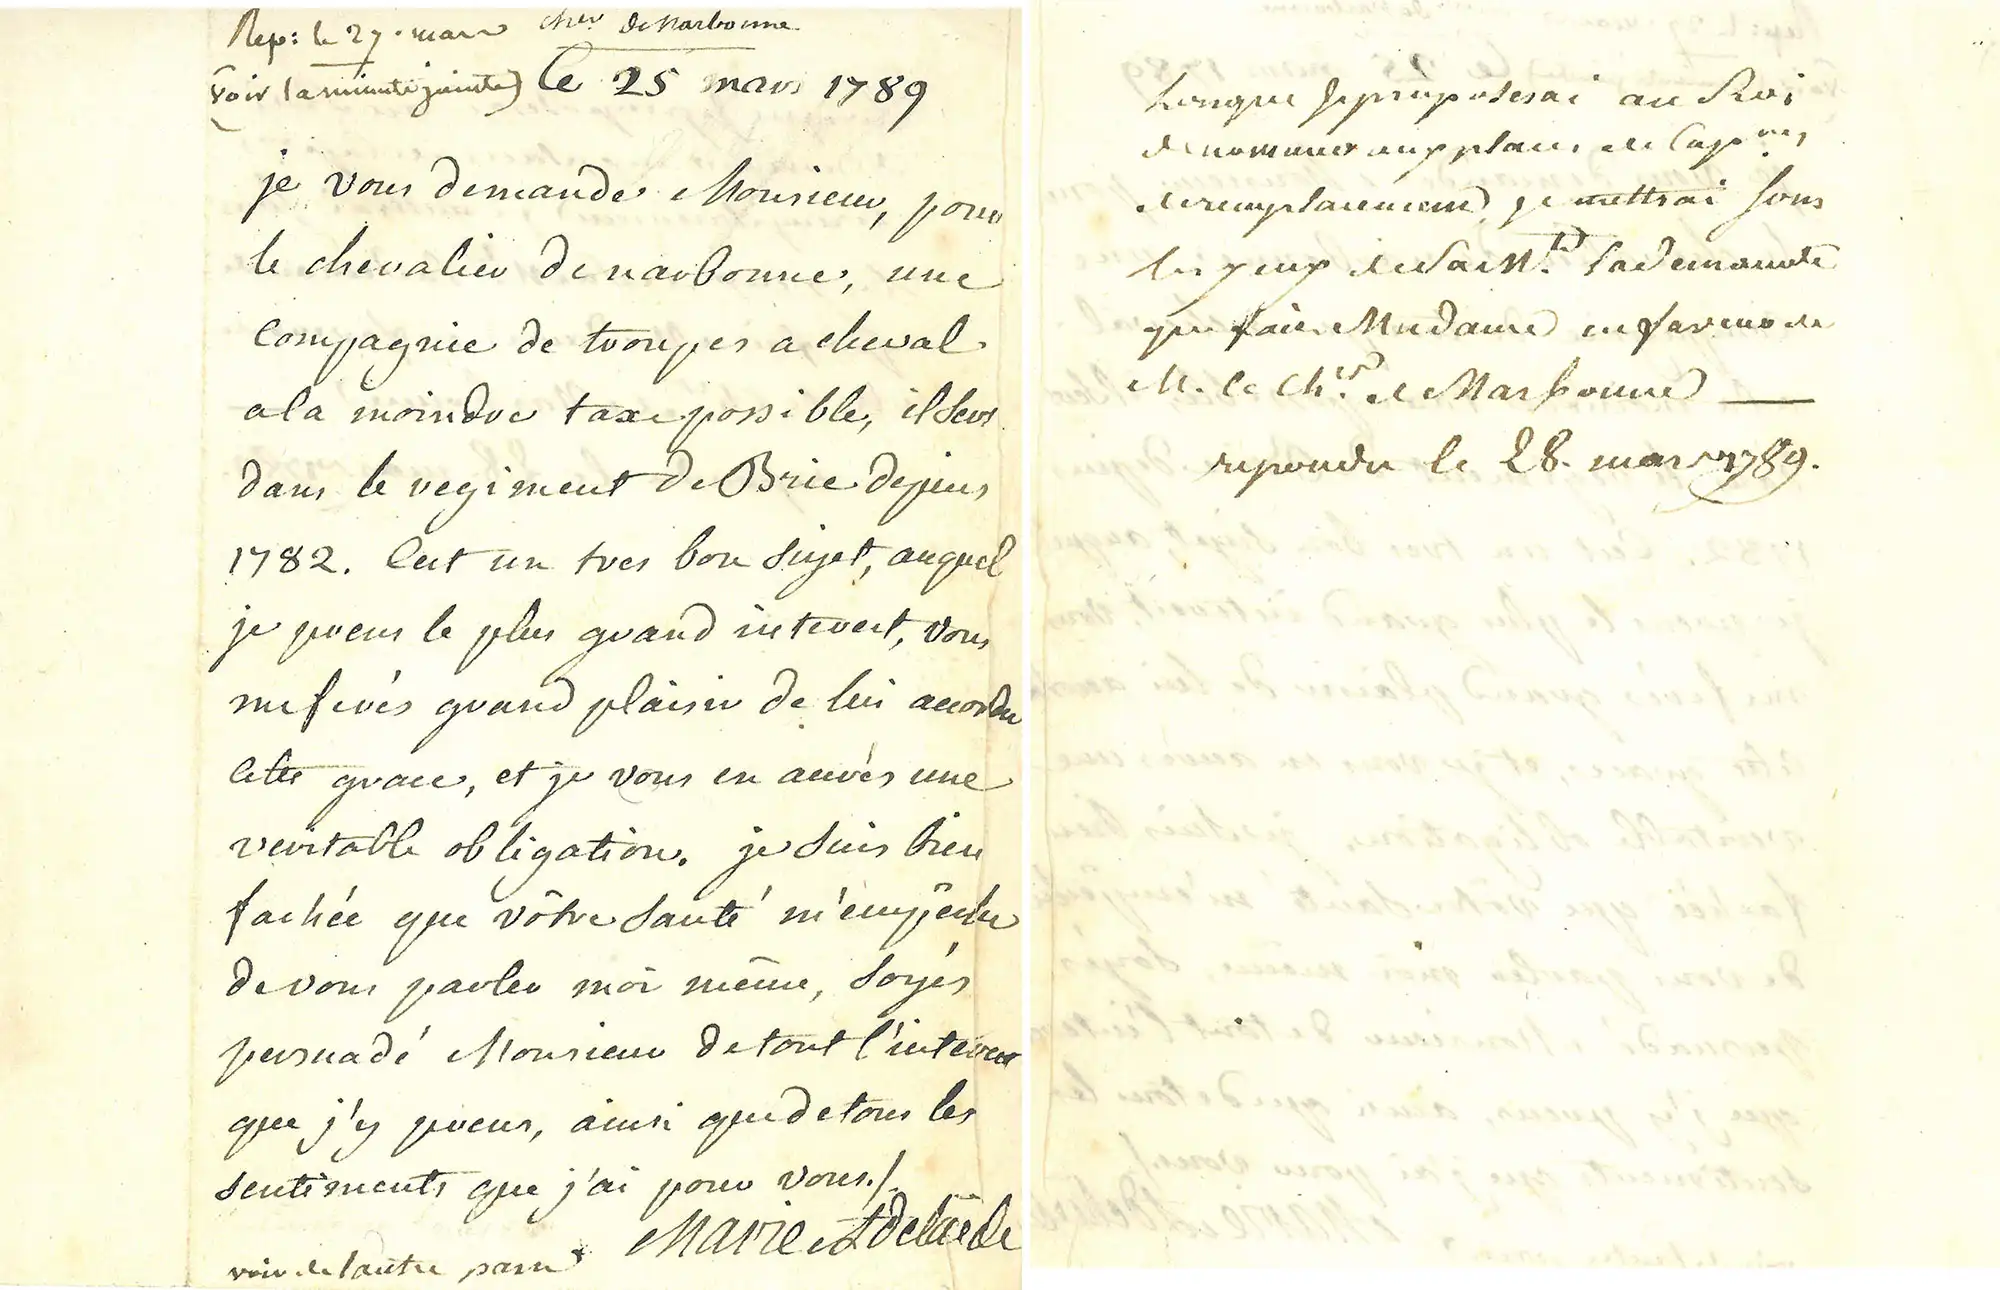 Rep: le 27. mars cher de Narbonne
(voir la minute jointe) le 25 mars 1789
je vous demande Monsieur, pour
le chevalier de narbonne, une
compagnie de troupes a cheval
a la moindre taxe possible, il sert
dans le regiment de Brie depuis
1782. C'est un tres bon sujet, auquel
je prens le plus grand interest, vous
me ferés grand plaisir de lui accorder
cette grace, et je vous en aurés une
veritable obligation. je suis bien
fachée que vôtre santé m'empêche
de vous parler moi même, soyés
persuadé Monsieur de tout l'interest
que j'y prens, ainsi que de tous les
sentiments que j'ai pour vous./.
Marie Adelaïde
voir de l'autre part
Lorsque je proposerai au Roi
de nommer aux places de Capnes
de remplacement, je mettrai sous
les yeux de Sa Mté la demande
que fait Madame en faveur de
M. le Cher de Narbonne
repondu le 28. mars 1789.